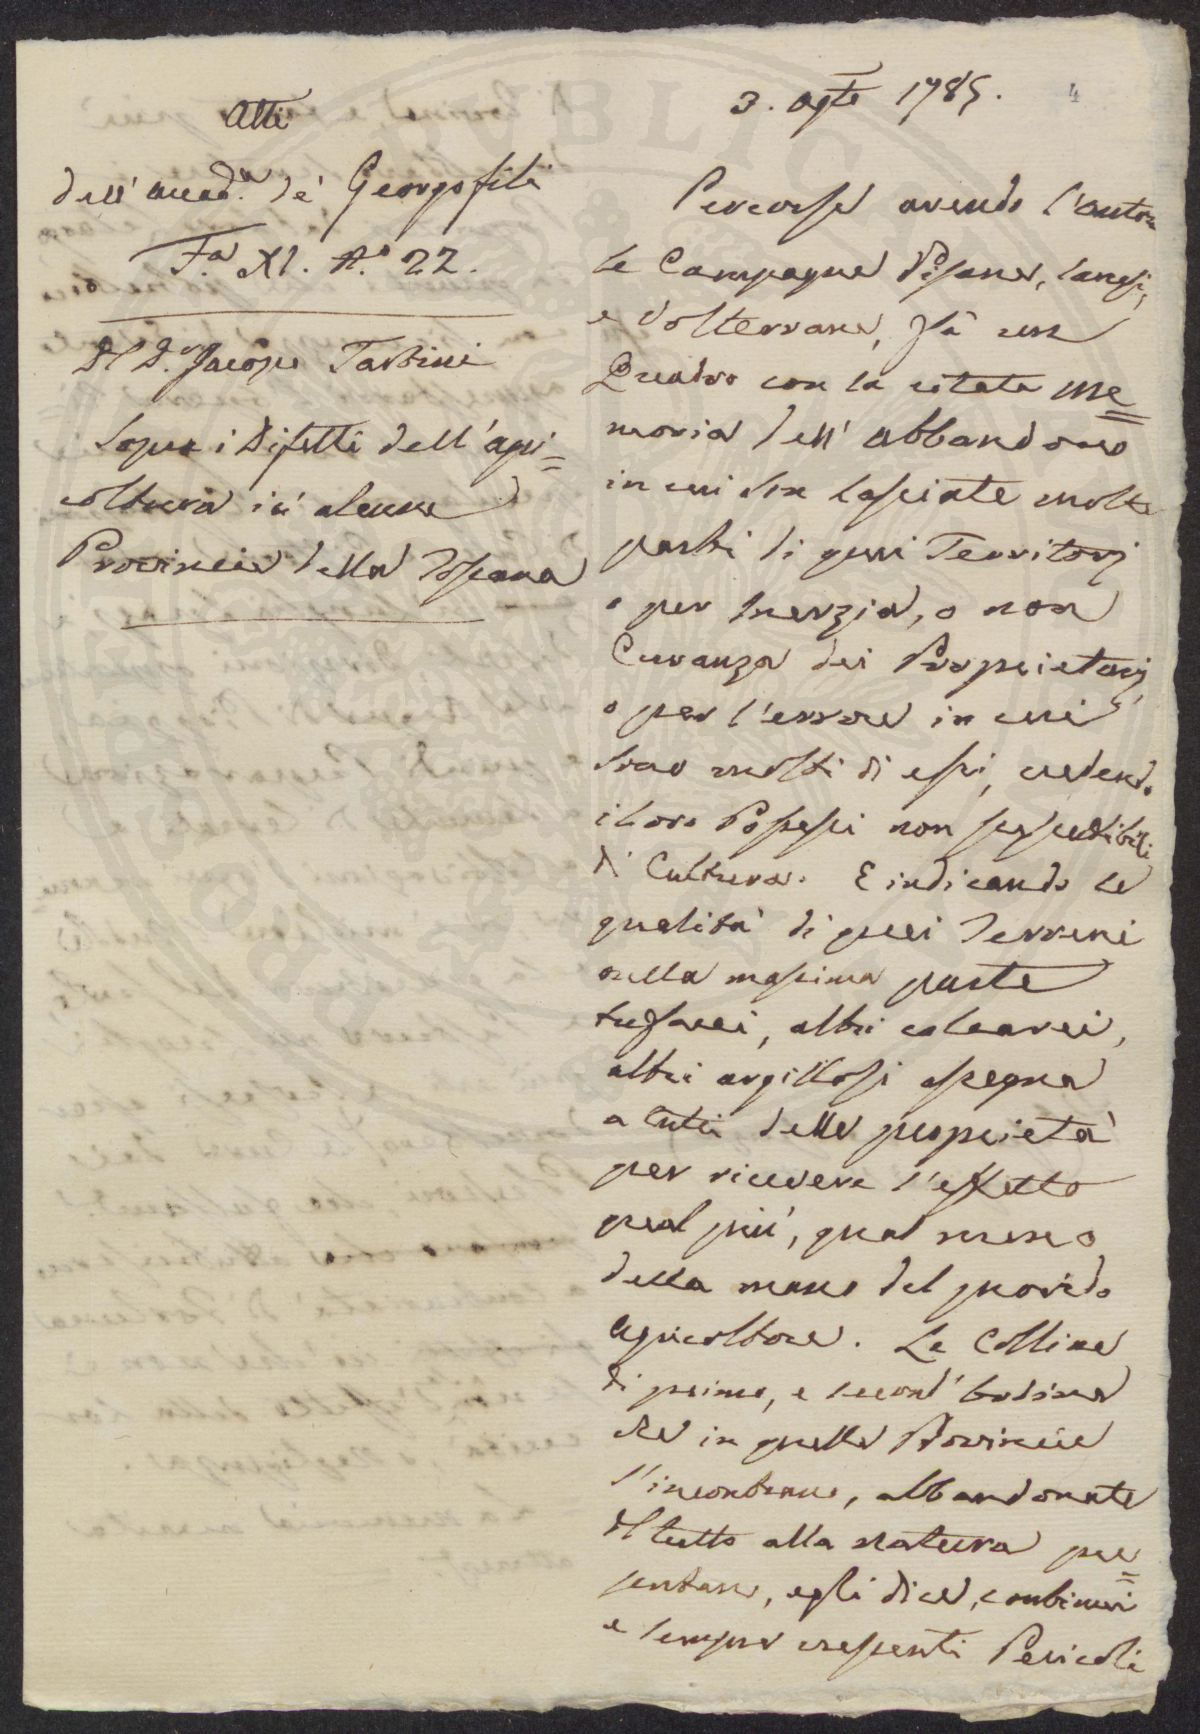 Atti
dell' Accad.a de' Georgofili
F.a XI. N.o 22.
Del D.r Jacopo Tartini
sopra i Difetti dell' agri=
coltura in alcune
Provincie della Toscana
3. Agto 1785.
4
Percorse avendo l'autore
le Campagne Pisane,
e Volterrane, fà un
Quadro con la citata me=
moria dell' abbandono
in cui son lasciate molte
parti di quei Territorj
o per Inerzia, o non
Curanza dei Proprietarj,
o per l'errore in cui
sono molti di essi, credendo
i loro Possessi non suscettibili
di Cultura. E indicando le
qualità di quei Terreni
nella massima parte
tufacei, altri calcarei,
altri argillosi assegna
a tutti delle proprietà
per ricevere l'effetto
qual più, qual meno
della mano del provido
agricoltore. Le Colline
di primo, e second' ordine
che in quelle Provincie
s'incontrano, abbandonate
del tutto alla natura pre=
sentano, egli dice, continui
e sempre crescenti Pericoli